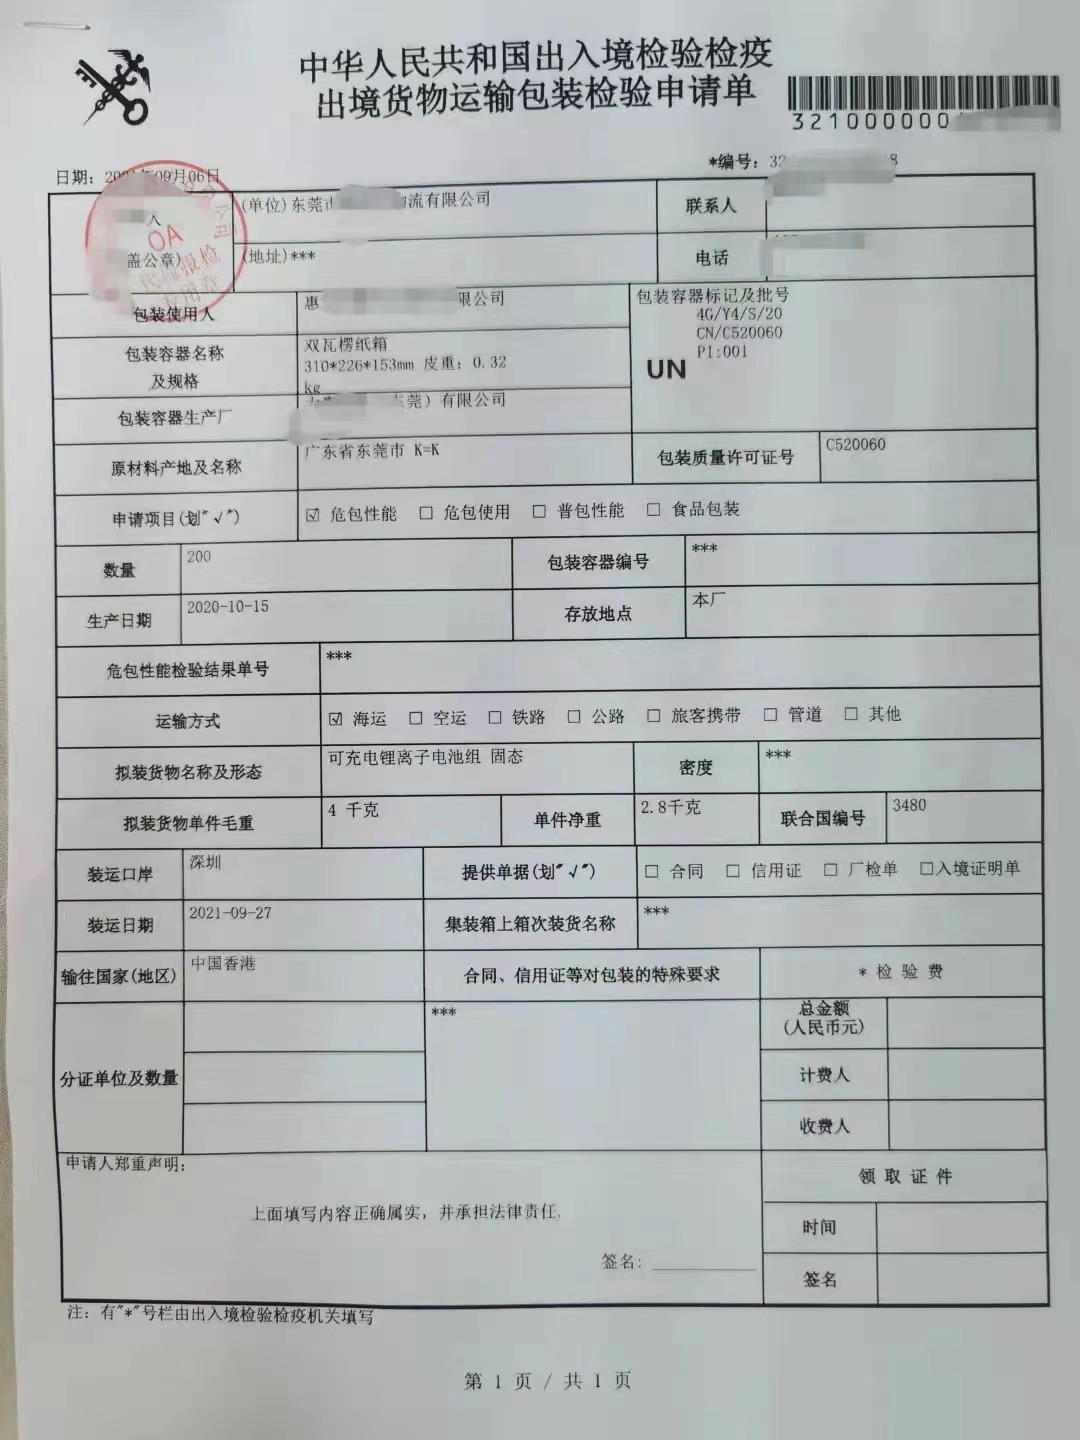 中华人民共和国出入境检验检疫
出境货物运输包装检验申请单
321000000
日期： 09月06日
*编号：32 8
人
盖公章)
OA
代理报检
专用章
(单位)东莞市 物流有限公司
联系人
(地址)***
电话
包装使用人
惠 限公司
包装容器标记及批号
4G/Y4/S/20
CN/C520060
PI:001
UN
包装容器名称
及规格
双瓦楞纸箱
310*226*153mm 皮重：0.32
kg
包装容器生产厂
东莞）有限公司
原材料产地及名称
广东省东莞市 K=K
包装质量许可证号
C520060
申请项目(划"√")
☑ 危包性能 □ 危包使用 □ 普包性能 □ 食品包装
数量
200
包装容器编号
***
生产日期
2020-10-15
存放地点
本厂
危包性能检验结果单号
***
运输方式
☑ 海运 □ 空运 □ 铁路 □ 公路 □ 旅客携带 □ 管道 □ 其他
拟装货物名称及形态
可充电锂离子电池组 固态
密度
***
拟装货物单件毛重
4 千克
单件净重
2.8千克
联合国编号
3480
装运口岸
深圳
提供单据(划"√")
□ 合同 □ 信用证 □ 厂检单 □入境证明单
装运日期
2021-09-27
集装箱上箱次装货名称
***
输往国家(地区)
中国香港
合同、信用证等对包装的特殊要求
* 检 验 费
***
总金额
(人民币元)
分证单位及数量
计费人
收费人
申请人郑重声明：
上面填写内容正确属实，并承担法律责任.
签名：
领 取 证 件
时间
签名
注：有"*"号栏由出入境检验检疫机关填写
第 1 页 / 共 1 页